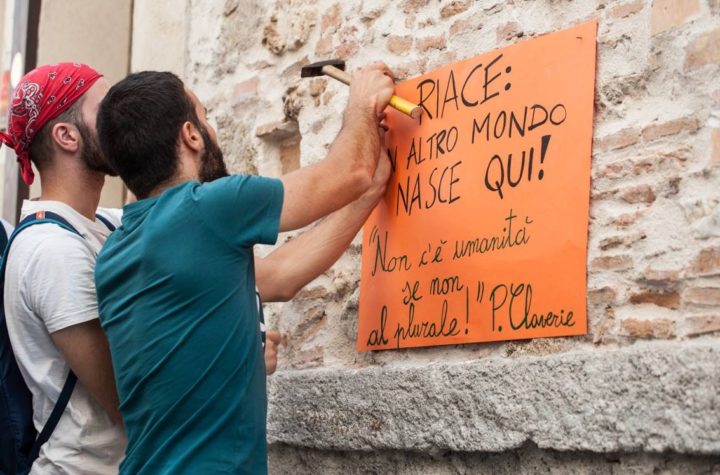 RIACE:
N ALTRO MONDO
NASCE QUI!
"Non c'è umanità
se non
al plurale!" P. Claverie